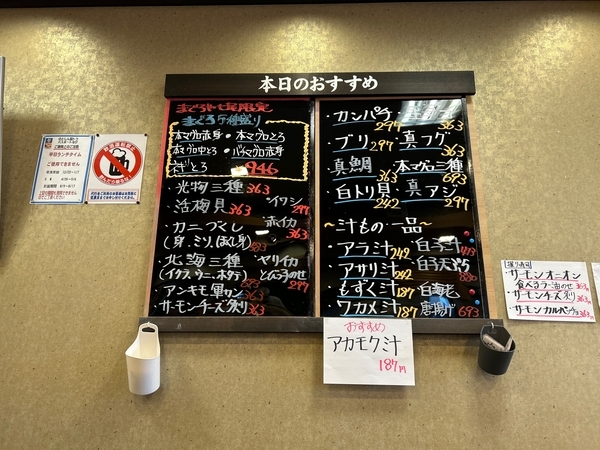 本日のおすすめ
まぐろ
まぐろ5種盛り
本マグロ赤身・本マグロとろ
バチマグロ赤身
ねぎとろ 946
・光物三種 363
・イワシ 297
・活梅貝 363
・ホイカ 363
・カニづくし
(身、ミソ、ほぐし身)
・北海三種
(イクラ、ウニ、ホタテ)
・ヤリイカ
とんぶりのせ 297
・アンキモ軍カン 363
・サーモンチーズ炙り 363
・カンパチ 297
363
・ブリ 297
・真フグ 363
・真鯛 363
・本マグロ三種 693
・白トリ貝 242
・真アジ 297
～汁もの一品～
・アラ汁 242
・白子汁 473
・アサリ汁 242
・白子天ぷら
・もずく汁 187
・白海老唐揚げ 693
・ワカメ汁 187
おすすめ
アカモク汁
187円
平日ランチタイム
ご使用できません
飲酒運転防止
サーモンオニオン
食べるラー油のせ 363円
サーモンチーズ炙り 363円
サーモンカルパッチョ 363円